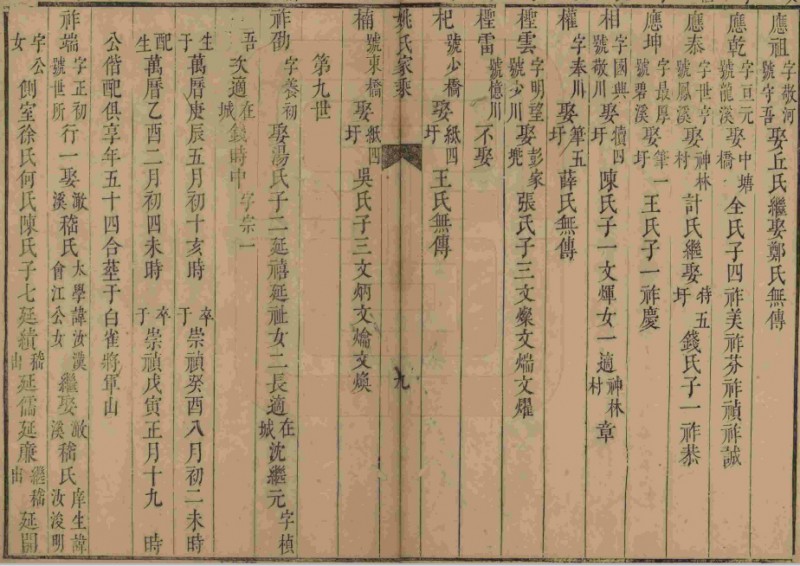 應祖字敬河號守吾娶丘氏繼娶鄭氏無傳
應乾字亘元號龍溪娶中塘橋全氏子四祚美祚芬祚禎祚誠
應泰字世亨號鳳溪娶神林村計氏繼娶特五圩錢氏子一祚恭
應坤字最厚號碧溪娶筆一圩王氏子一祚慶
相字國興號敬川娶積四圩陳氏子一文煇女一適神林村章
權字奉川號娶筆五圩薛氏無傳
檉雲字明望號少川娶彭家兠張氏子三文燦文煓文燿
檉雷號憶川不娶
杞號少橋娶紙四圩王氏無傳
姚氏家乘
九
楠號東橋娶紙四圩吳氏子三文炳文爚文煥
第九世
祚劭字養初娶湯氏子二延禧延祉女二長適在城沈繼元字楨
吾次適在城錢時中字宗一
生于萬曆庚辰五月初十亥時卒于崇禎癸酉八月初二未時
配生萬曆乙酉二月初四未時卒于崇禎戊寅正月十九時
公偕配俱享年五十四合葬于白雀將軍山
祚端字正初號世所行一娶澉溪嵇氏太學諱汝漢會江公女繼娶澉溪嵇氏庠生諱汝浚明
字公女側室徐氏何氏陳氏子七延績嵇出延儒延亷繼嵇出延開